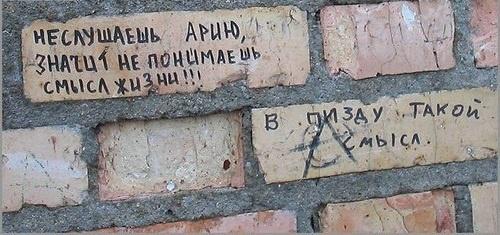 НЕСЛУШАЕШЬ АРИЮ,
ЗНАЧИТ НЕ ПОНИМАЕШЬ
СМЫСЛ ЖИЗНИ!!!
В ПИЗДУ ТАКОЙ
СМЫСЛ.